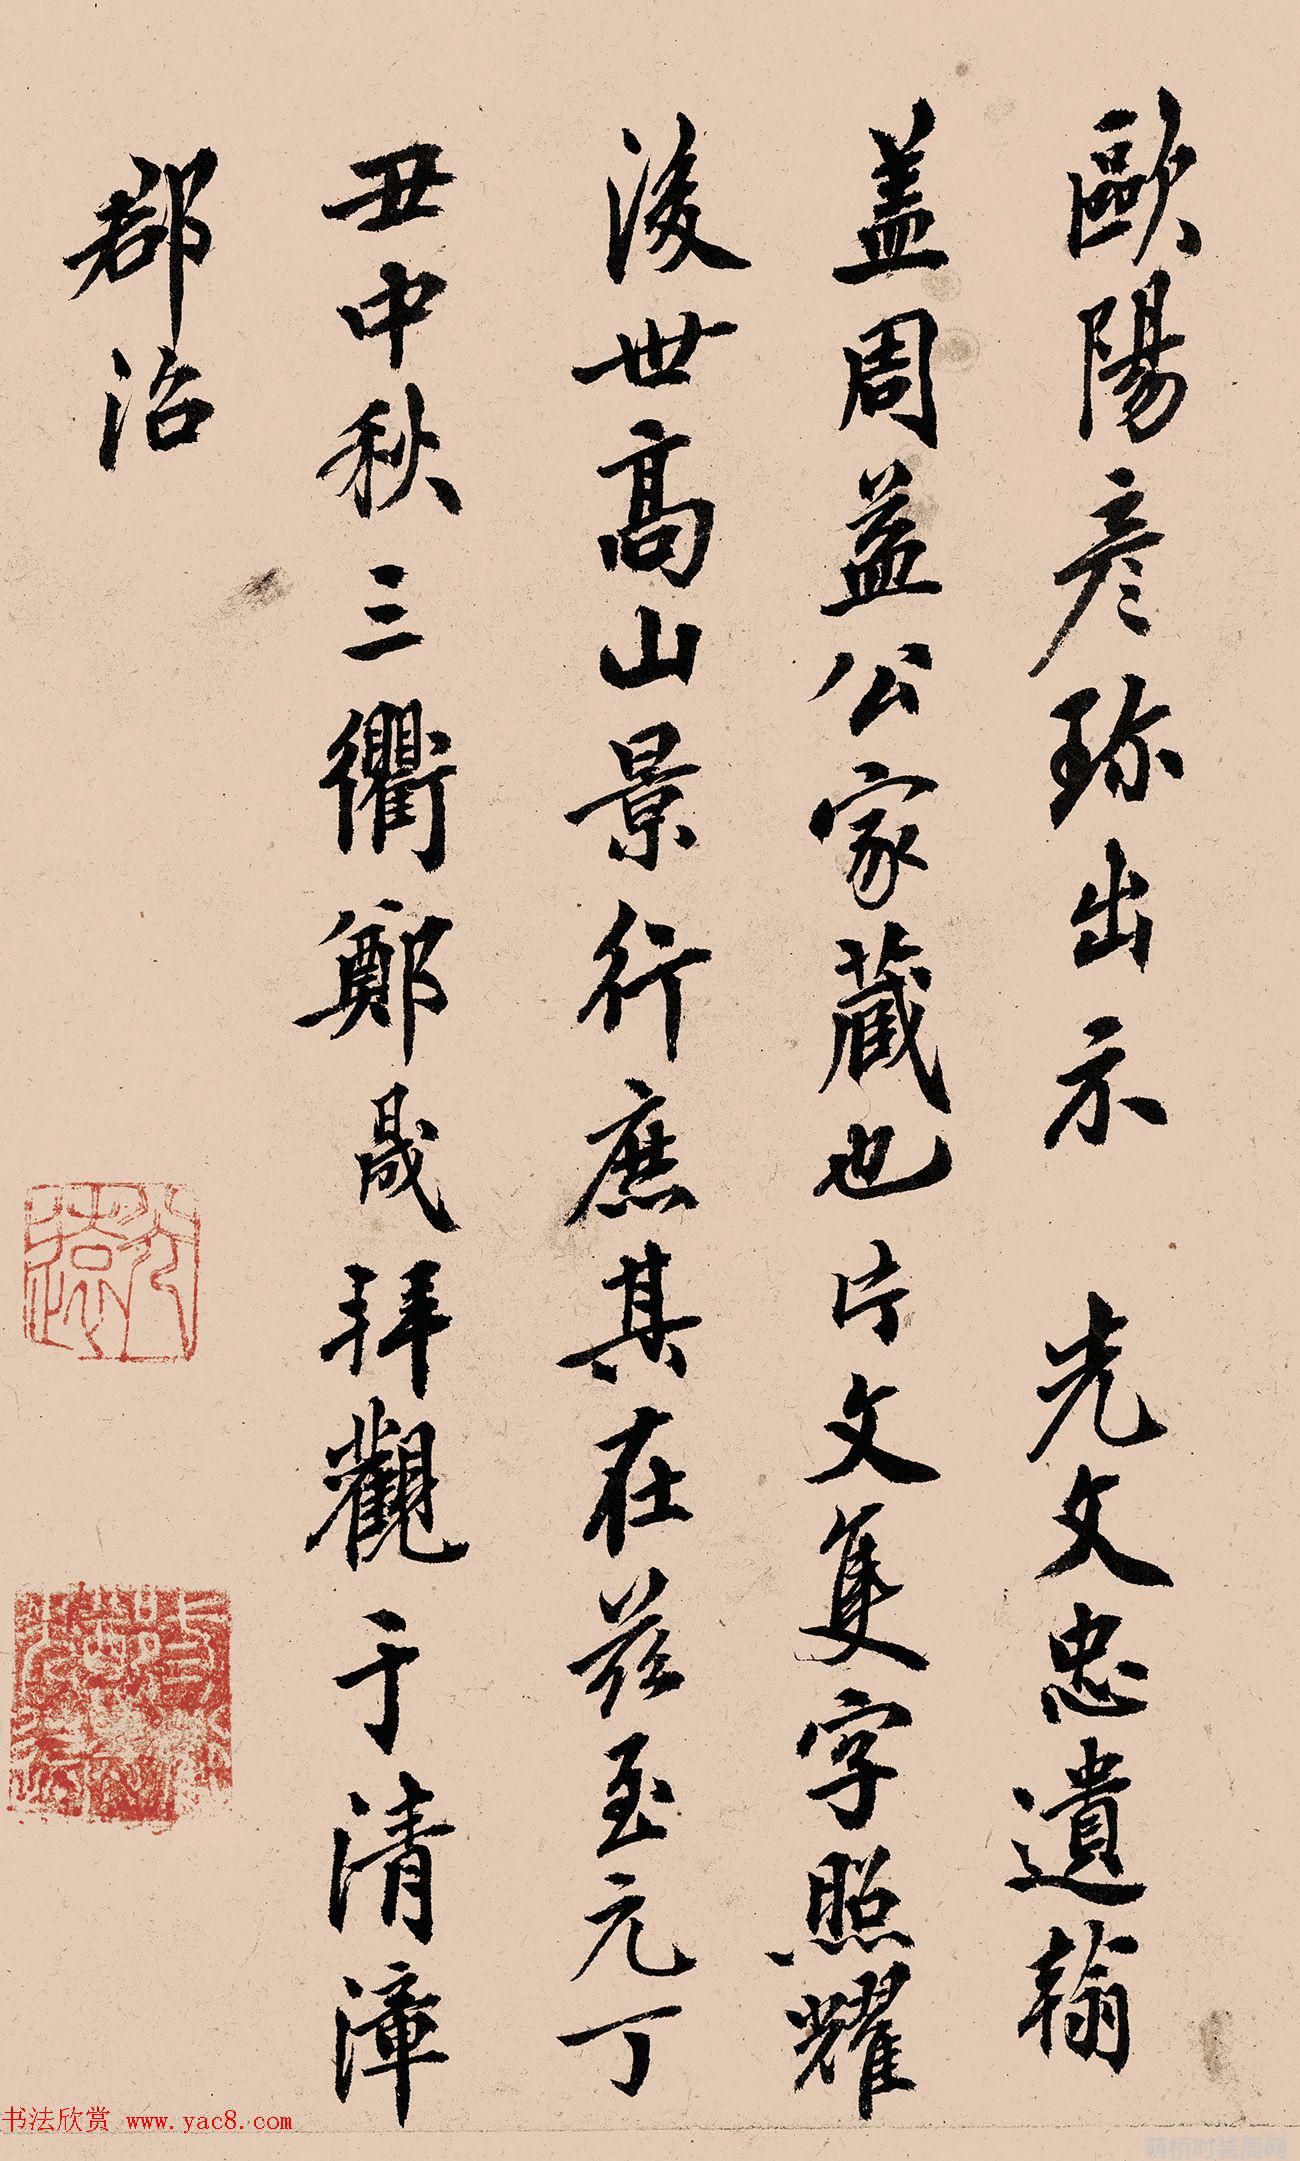 歐陽彦珎出示 先文忠遺翰
盖周益公家藏也片文隻字照耀
後世高山景行庶其在兹至元丁
丑中秋三衢鄭晟拜觀于清漳
郡治
书法欣赏 www.yac8.com
萌桥时装周网